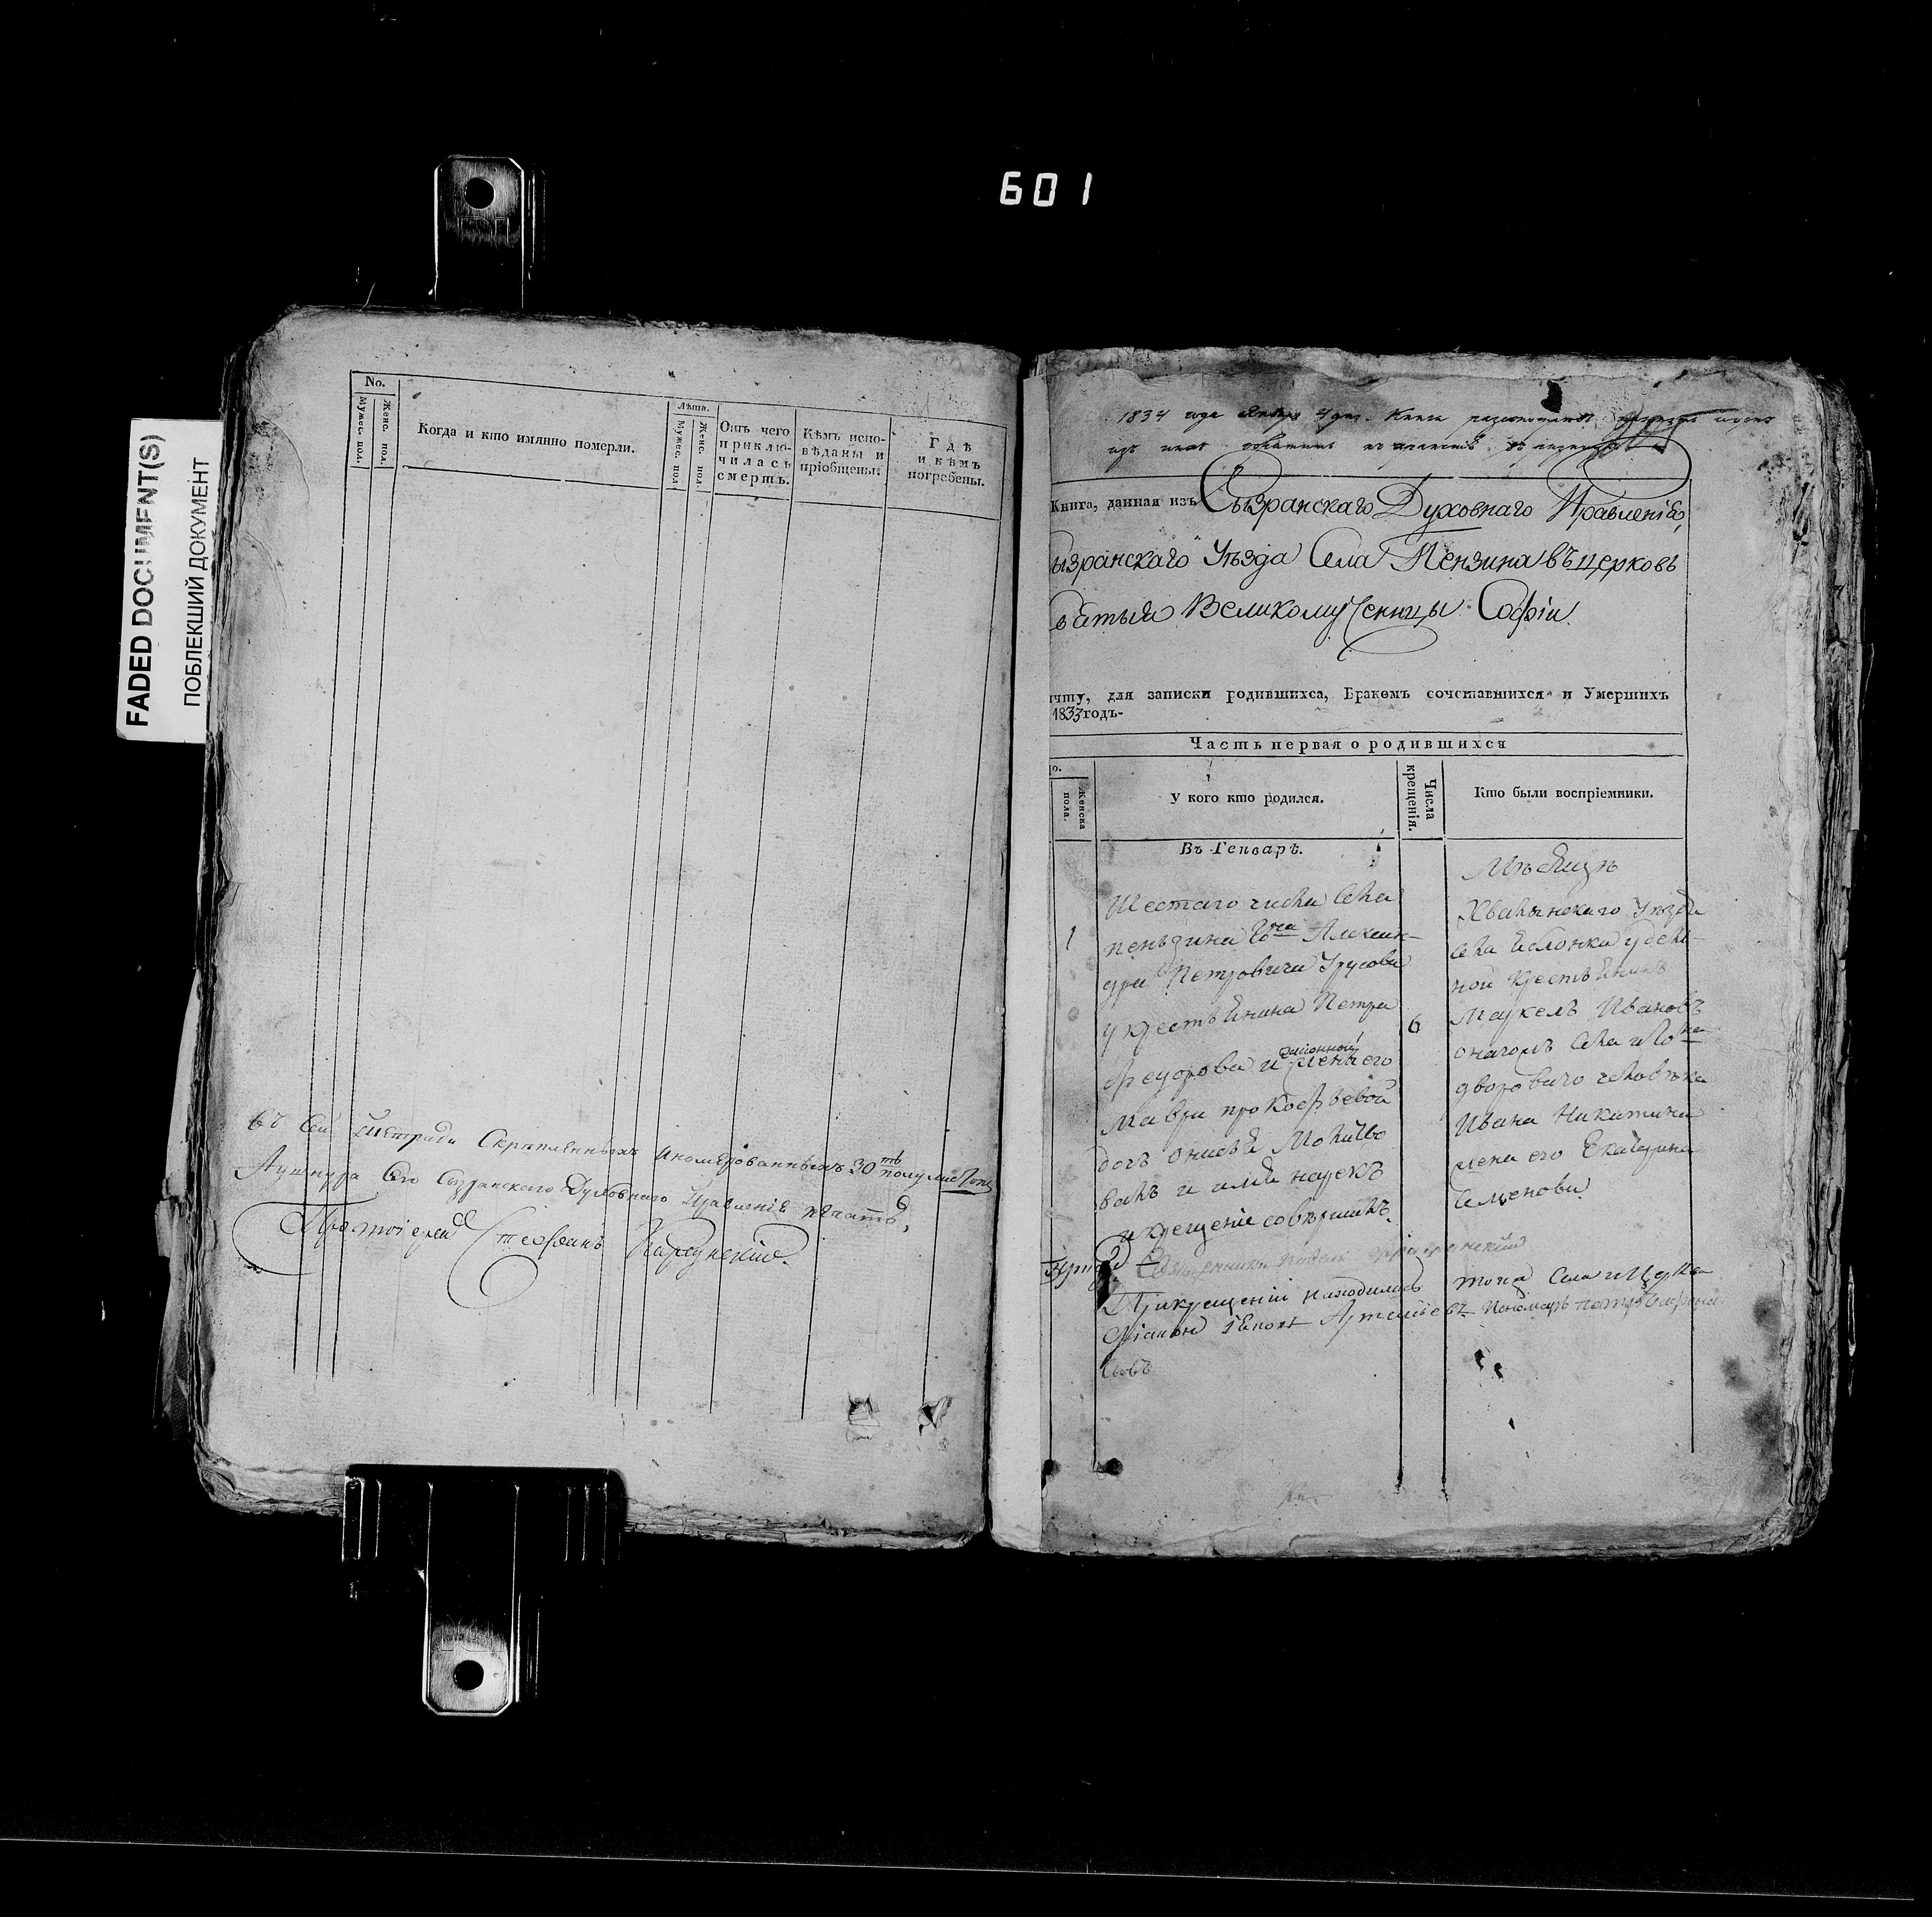 601
FADED DOCUMENT(S)
ПОБЛЕКШИЙ ДОКУМЕНТ
No.
Мужес. пол.
Женс. пол.
Когда и кто имянно померли.
Лѣта.
Мужес. пол
Женс. пол.
Отъ чего
приклю-
чилась
смерть.
Кѣмъ испо-
вѣданы и
пріобщены.
Гдѣ
и кѣмъ
погребены.
въ сей тетради скрепленныхъ иномерованныхъ 30ть полулистовъ
Ашнура его Сызранскаго Духовнаго Правленія печать,
Протоіерей Стефанъ
1834 года Января 4 дня. Книга
Книга, данная изъ Сызранскаго Духовнаго Правленія,
ызранскаго Уѣзда Села Пензина въ церковь
вятыя Великомученицы Софіи.
ичту, для записки родившихся, Бракомъ сочетавшихся и Умершихъ
1833 годъ-
Часть первая о родившихся
о.
Женска
пола.
У кого кто родился.
Числа
крещенія.
Кто были воспріемники.
Въ Генварѣ.
1
Шестаго числа села
пензина Гона Алексан-
дра Петровича Урусова
у крестьянина Петра
Федорова и законной жены его
Мавры прокофьевой
дочь Молитво
валъ и имя нарекъ
и крещеніе совершилъ
6
Хвалынскаго Уезда
села Яблонки удель-
ной крестьянинъ
Маркелъ Ивановъ
села Гона
двороваго человѣка
Ивана Никитина
жена его Екатерина
Семенова
При крещеніи находились того села и церкви
Діаконъ Артемьевъ Пономарь